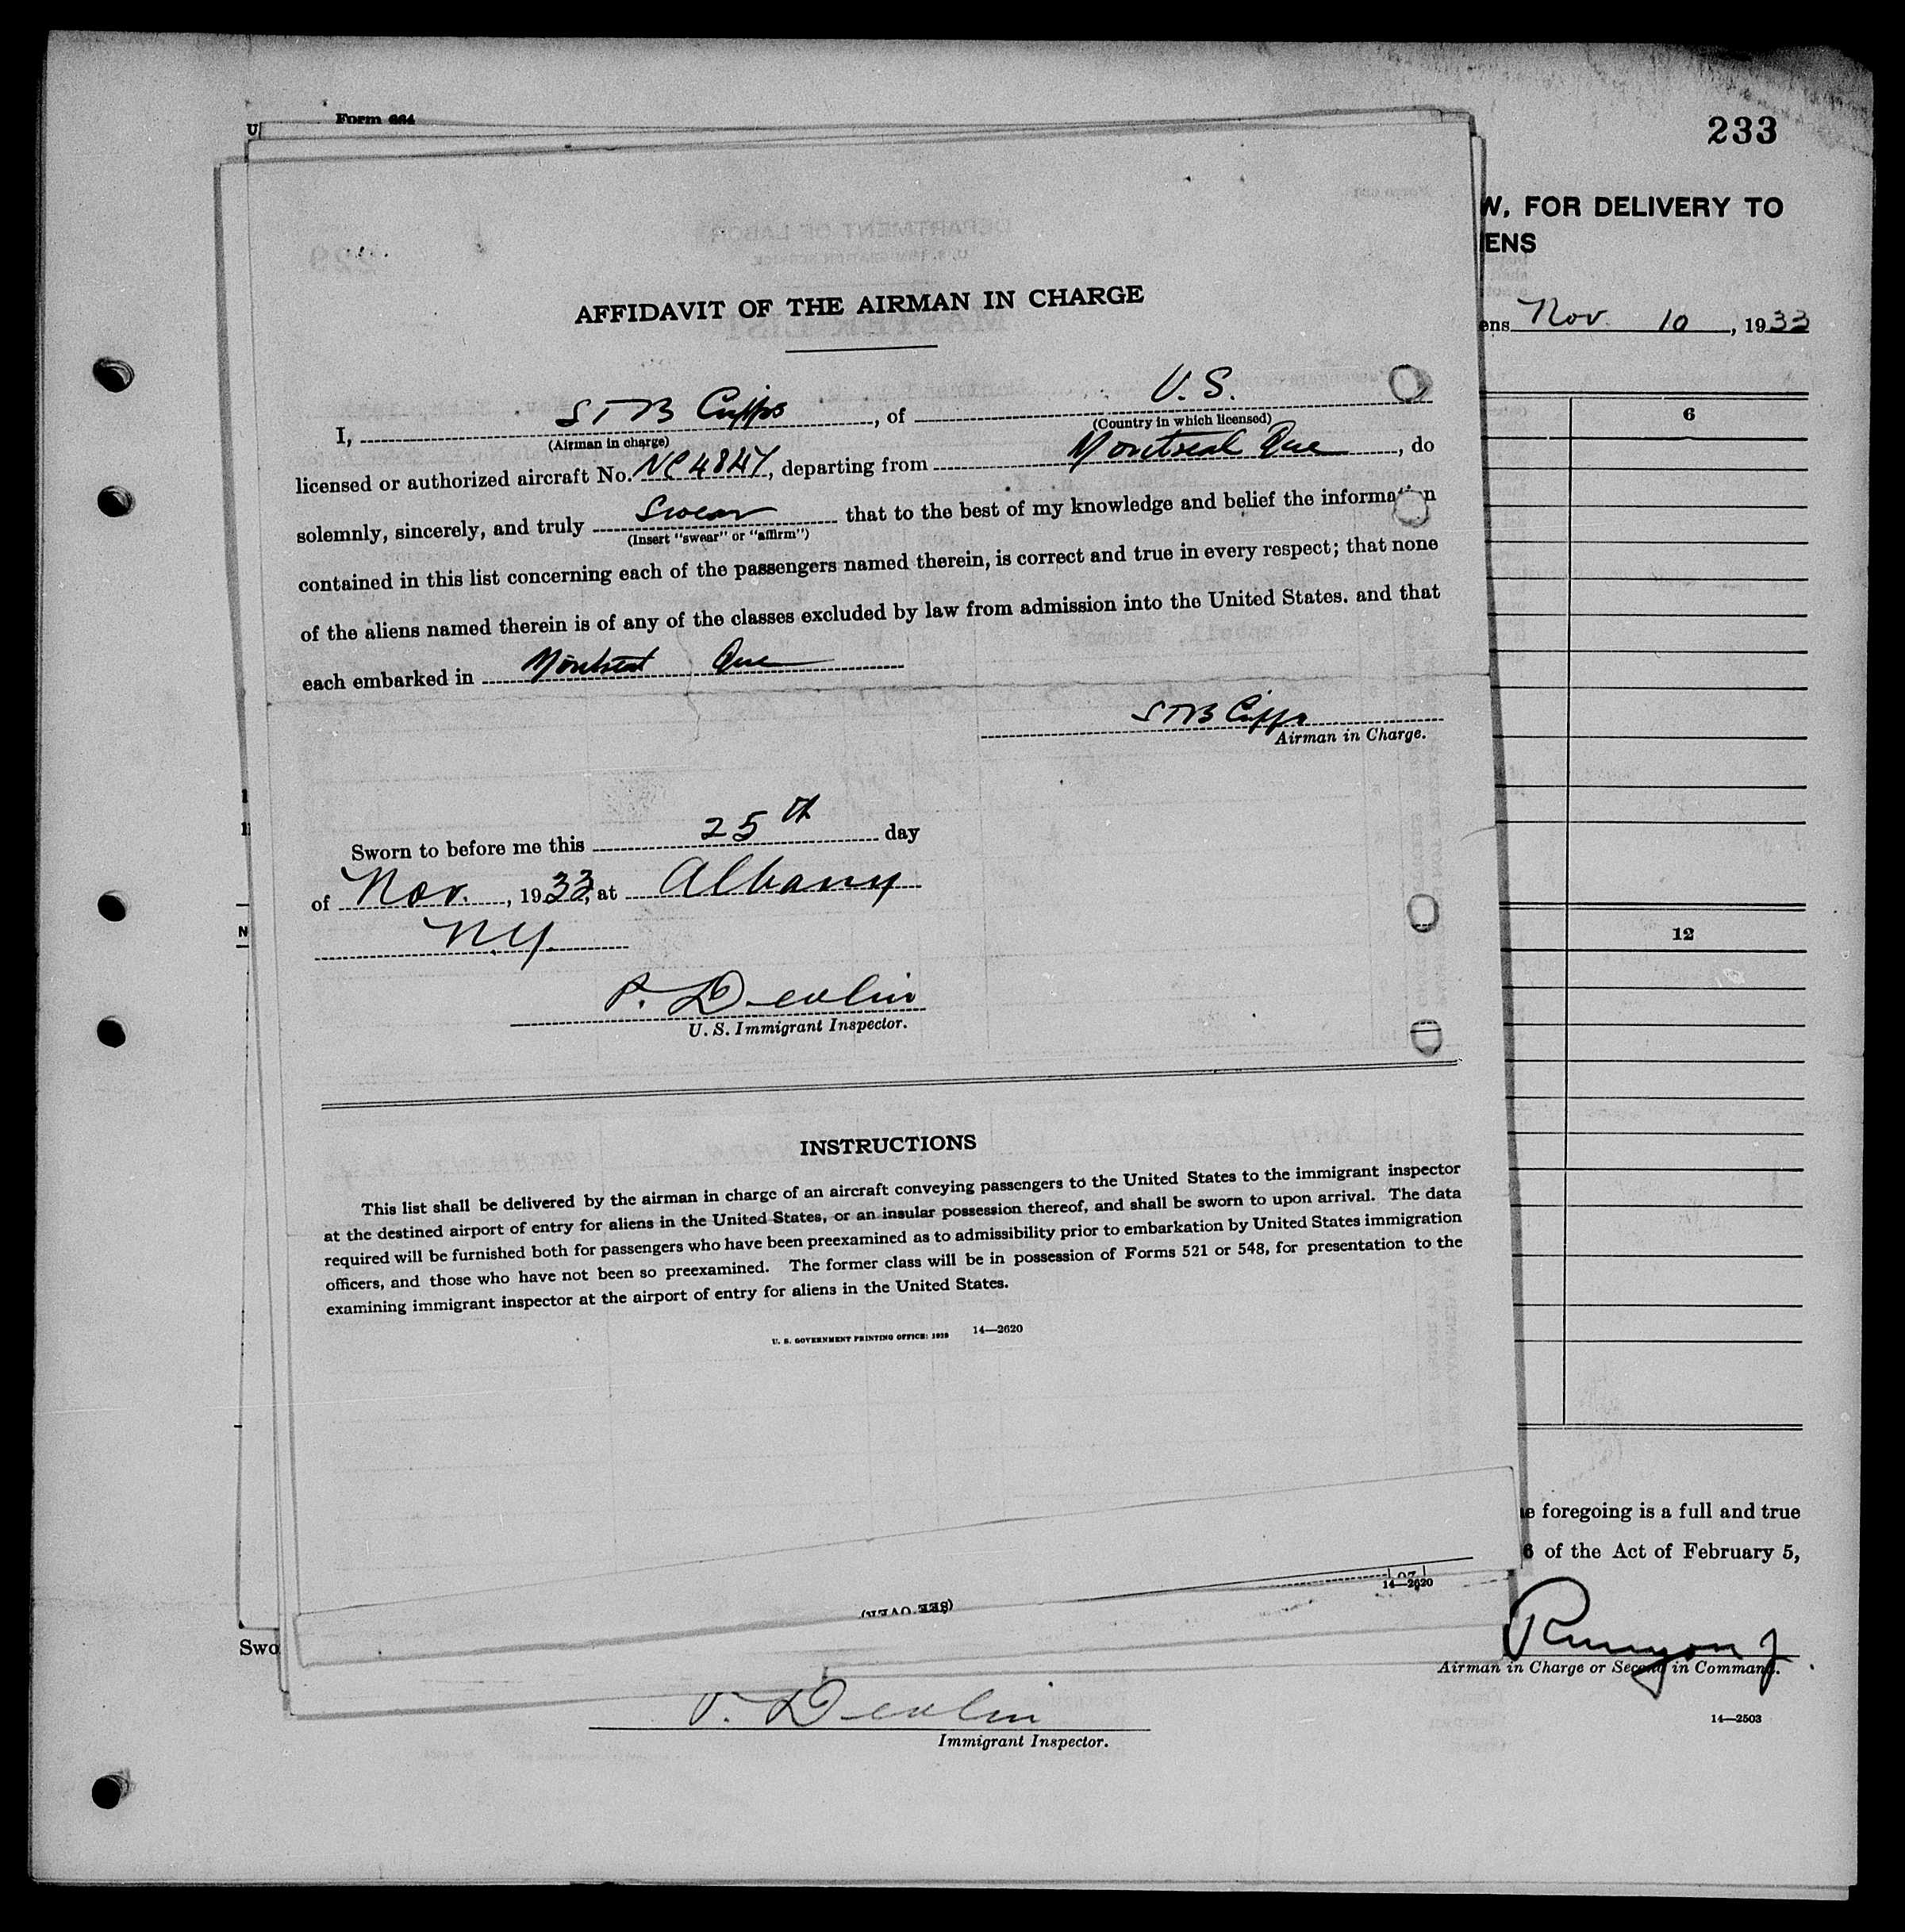 Form 664
U
233
W, FOR DELIVERY TO
ENS
ens Nov. 10, 1933
AFFIDAVIT OF THE AIRMAN IN CHARGE
I, S T B Cripps, of U. S.
(Airman in charge) (Country in which licensed)
licensed or authorized aircraft No. NC 484Y, departing from Montreal Que, do
solemnly, sincerely, and truly Swear that to the best of my knowledge and belief the information
(Insert "swear" or "affirm")
contained in this list concerning each of the passengers named therein, is correct and true in every respect; that none
of the aliens named therein is of any of the classes excluded by law from admission into the United States. and that
each embarked in Montreal Que
Airman in Charge.
Sworn to before me this 25th day
of Nov., 1933, at Albany
N.Y.
P. Devlin
U. S. Immigrant Inspector.
INSTRUCTIONS
This list shall be delivered by the airman in charge of an aircraft conveying passengers to the United States to the immigrant inspector
at the destined airport of entry for aliens in the United States, or an insular possession thereof, and shall be sworn to upon arrival. The data
required will be furnished both for passengers who have been preexamined as to admissibility prior to embarkation by United States immigration
officers, and those who have not been so preexamined. The former class will be in possession of Forms 521 or 548, for presentation to the
examining immigrant inspector at the airport of entry for aliens in the United States.
U. S. GOVERNMENT PRINTING OFFICE: 1929 14—2620
6
N
12
14—2620
(SEE OVER)
e foregoing is a full and true
6 of the Act of February 5,
Runyon J
Airman in Charge or Second in Command.
Swo
P. Devlin
Immigrant Inspector.
14—2503